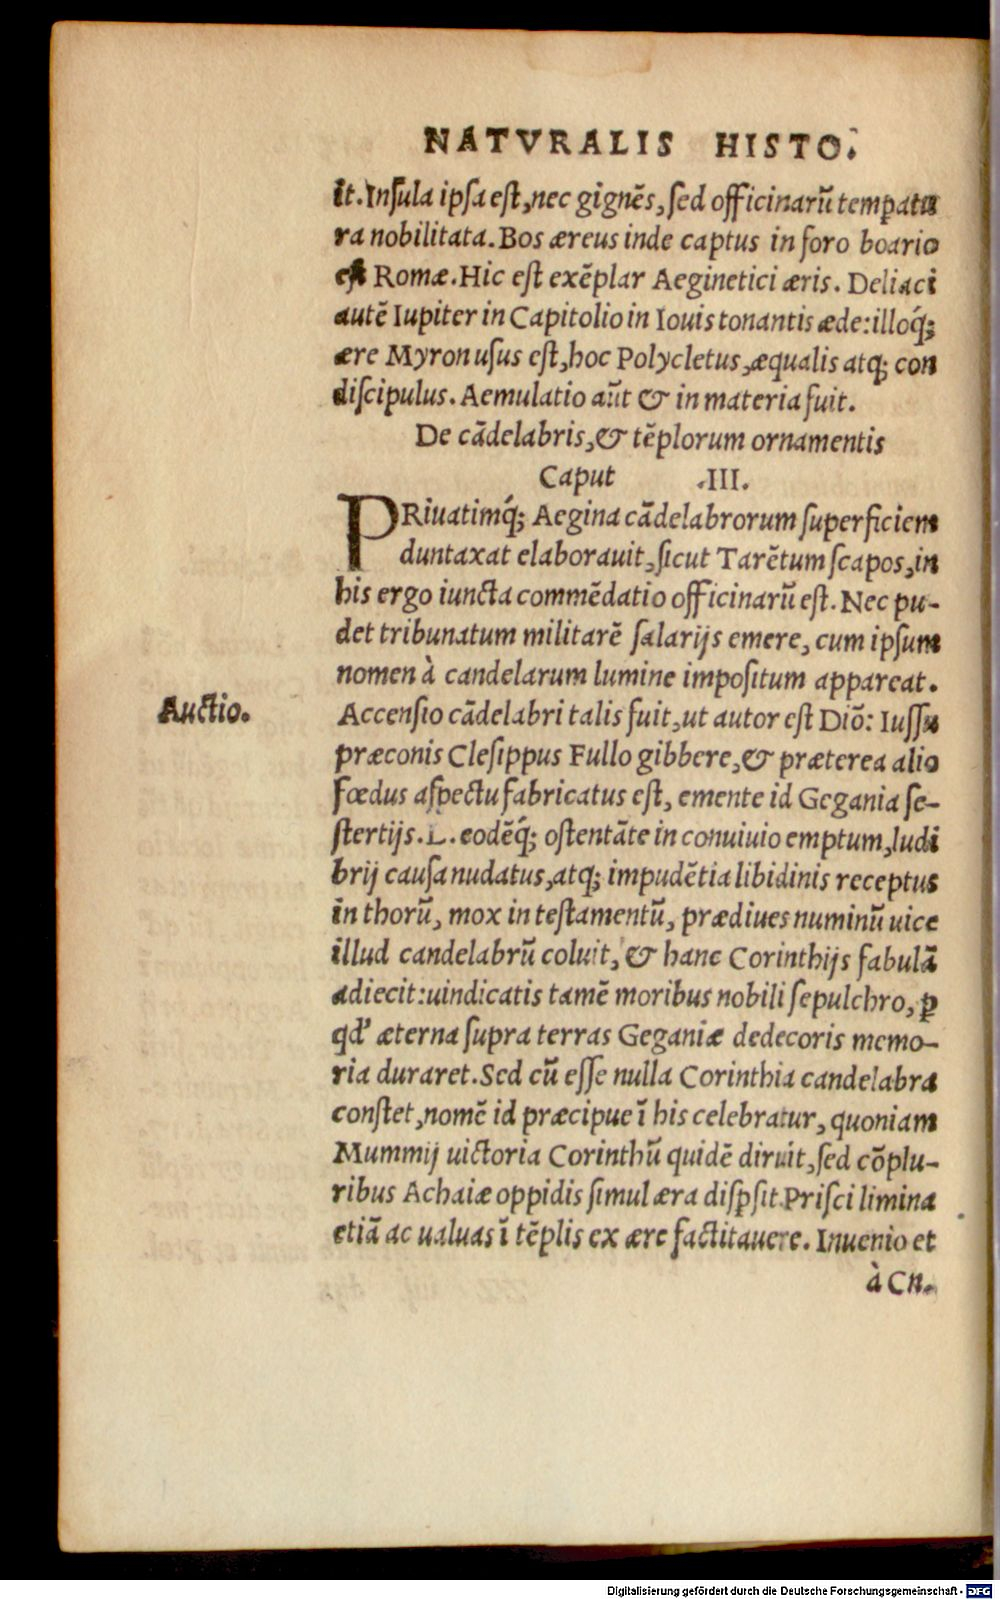 NATVRALIS HISTO.
it. Insula ipsa est, nec gignēs, sed officinarū temꝑatu
ra nobilitata. Bos æreus inde captus in foro boario
est Romæ. Hic est exēplar Aeginetici æris. Deliaci
autē Iupiter in Capitolio in Iouis tonantis æde: illoq́;
ære Myron usus est, hoc Polycletus, æqualis atq; con
discipulus. Aemulatio aūt & in materia fuit.
De cādelabris, & tēplorum ornamentis
Caput .III.
PRiuatimq́; Aegina cādelabrorum superficiem
duntaxat elaborauit, sicut Tarētum scapos, in
his ergo iuncta commēdatio officinarū est. Nec pu-
det tribunatum militarē salarijs emere, cum ipsum
nomen à candelarum lumine impositum appareat.
Auctio.
Accensio cādelabri talis fuit, ut autor est Diō: Iussu
præconis Clesippus Fullo gibbere, & præterea alio
fœdus aspectu fabricatus est, emente id Gegania se-
stertijs. L. eodēq́; ostentāte in conuiuio emptum, ludi
brij causa nudatus, atq; impudētia libidinis receptus
in thorū, mox in testamentū, prædiues numinū uice
illud candelabrū coluit, & hanc Corinthijs fabulā
adiecit: uindicatis tamē moribus nobili sepulchro, ꝑ
qd' æterna supra terras Geganiæ dedecoris memo-
ria duraret. Sed cū esse nulla Corinthia candelabra
constet, nomē id præcipue ī his celebratur, quoniam
Mummij uictoria Corinthū quidē diruit, sed cōplu-
ribus Achaiæ oppidis simul æra disꝑsit. Prisci limina
etiā ac ualuas ī tēplis ex ære factitauere. Inuenio et
à Cn.
Digitalisierung gefördert durch die Deutsche Forschungsgemeinschaft - DFG